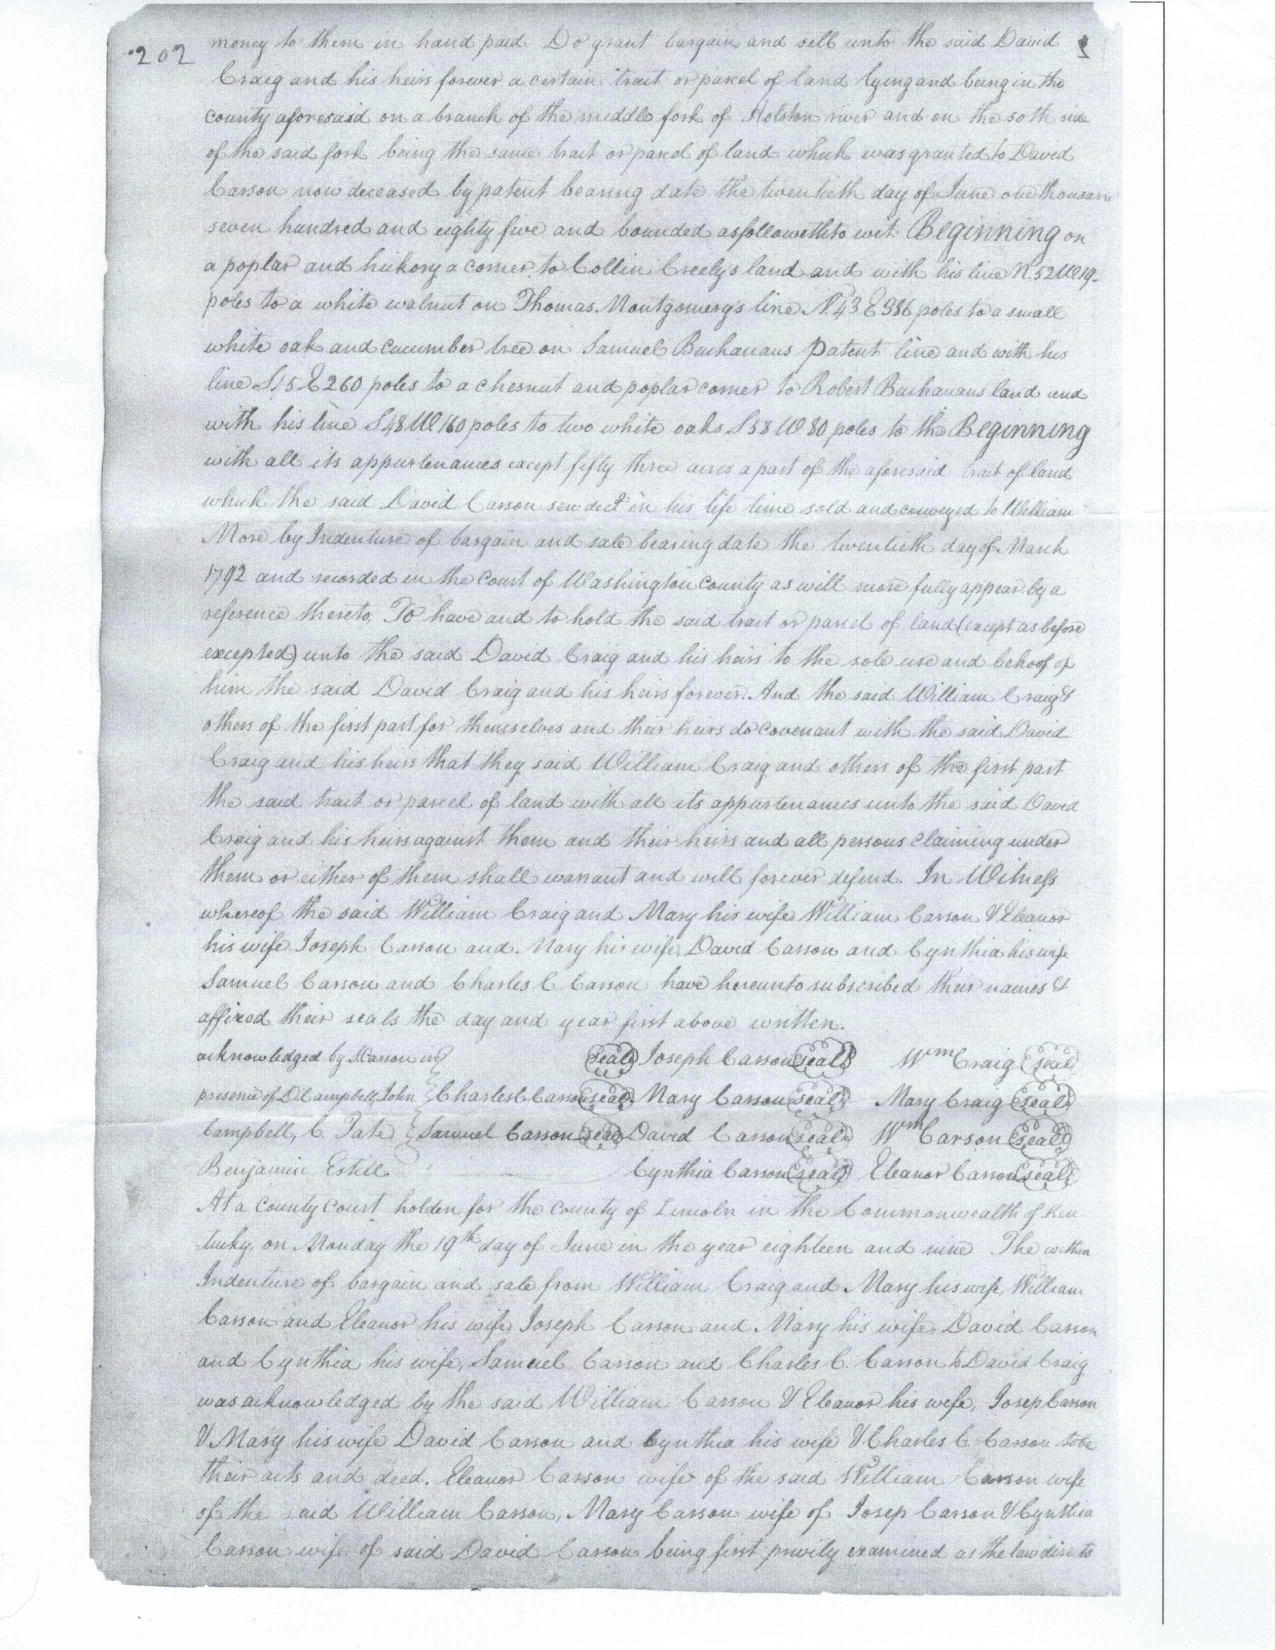 202
money to them in hand paid Do grant bargain and sell unto the said David
Craig and his heirs forever a certain tract or parcel of land lying and being in the
county aforesaid on a branch of the middle fork of Holston river and on the soth side
of the said fork being the same tract or parcel of land which was granted to David
Carson now deceased by patent bearing date the twentieth day of June one thousand
seven hundred and eighty five and bounded as followeth to wit. Beginning on
a poplar and hickory a corner to Collin Creelys land and with his line N. 52 W 19-
poles to a white walnut on Thomas Montgomerys line N 43 E 386 poles to a small
white oak and cucumber tree on Samuel Buchanans patent line and with his
line S 15 E 260 poles to a chesnut and poplar corner to Robert Buchanans land and
with his line S 48 W 160 poles to two white oaks S 58 W 80 poles to the Beginning
with all its appurtenances except fifty three acres a part of the aforesaid tract of land
which the said David Carson in his life time sold and conveyed to William
More by Indenture of bargain and sale bearing date the twentieth day of March
1792 and recorded in the court of Washington county as will more fully appear by a
reference thereto, To have and to hold the said tract or parcel of land (except as before
excepted) unto the said David Craig and his heirs to the sole use and behoof of
him the said David Craig and his heirs forever. And the said William Craig &
others of the first part for themselves and their heirs do covenant with the said David
Craig and his heirs that they said William Craig and others of the first part
the said tract or parcel of land with all its appurtenances unto the said David
Craig and his heirs against them and their heirs and all persons claiming under
them or either of them shall warrant and will forever defend. In Witness
whereof the said William Craig and Mary his wife William Carson & Eleanor
his wife Joseph Carson and Mary his wife, David Carson and Cynthia his wife
Samuel Carson and Charles C Carson have hereunto subscribed their names &
affixed their seals the day and year first above written.
acknowledged by D Carson in seal Joseph Carson seal Wm Craig seal
presence of D Campbell, John Charles C Carson seal Mary Carson seal Mary Craig seal
Campbell, C. Tate Samuel Carson seal David Carson seal Wm Carson seal
Benjamin Estill Cynthia Carson seal Eleanor Carson seal
At a county court holden for the county of Lincoln in the Commonwealth of Ken-
tucky, on Monday the 19th day of June in the year eighteen and nine The within
Indenture of bargain and sale from William Craig and Mary his wife, William
Carson and Eleanor his wife, Joseph Carson and Mary his wife, David Carson
and Cynthia his wife, Samuel Carson and Charles C. Carson to David Craig
was acknowledged by the said William Carson & Eleanor his wife, Josep Carson
& Mary his wife David Carson and Cynthia his wife & Charles C. Carson to be
their acts and deed. Eleanor Carson wife of the said William Carson wife
of the said William Carson, Mary Carson wife of Josep Carson & Cynthia
Carson wife of said David Carson being first privily examined as the law directs